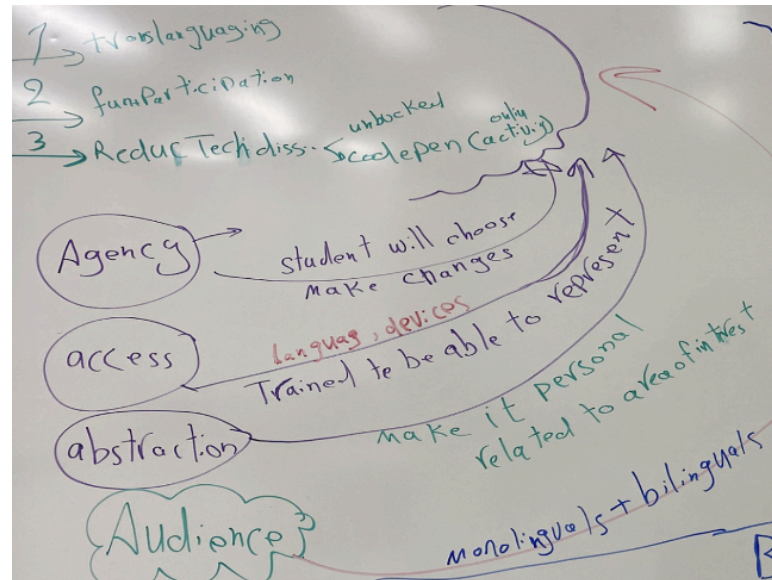 1 translanguaging
2 funParticipation
3 Reduc Tech diss..
unbocked
codepen (activity)
Agency
student will choose
make changes
access
languag, devices
Trained to be able to represent
abstraction
make it personal
related to area of intrest
Audience
monolinguals + bilinguals